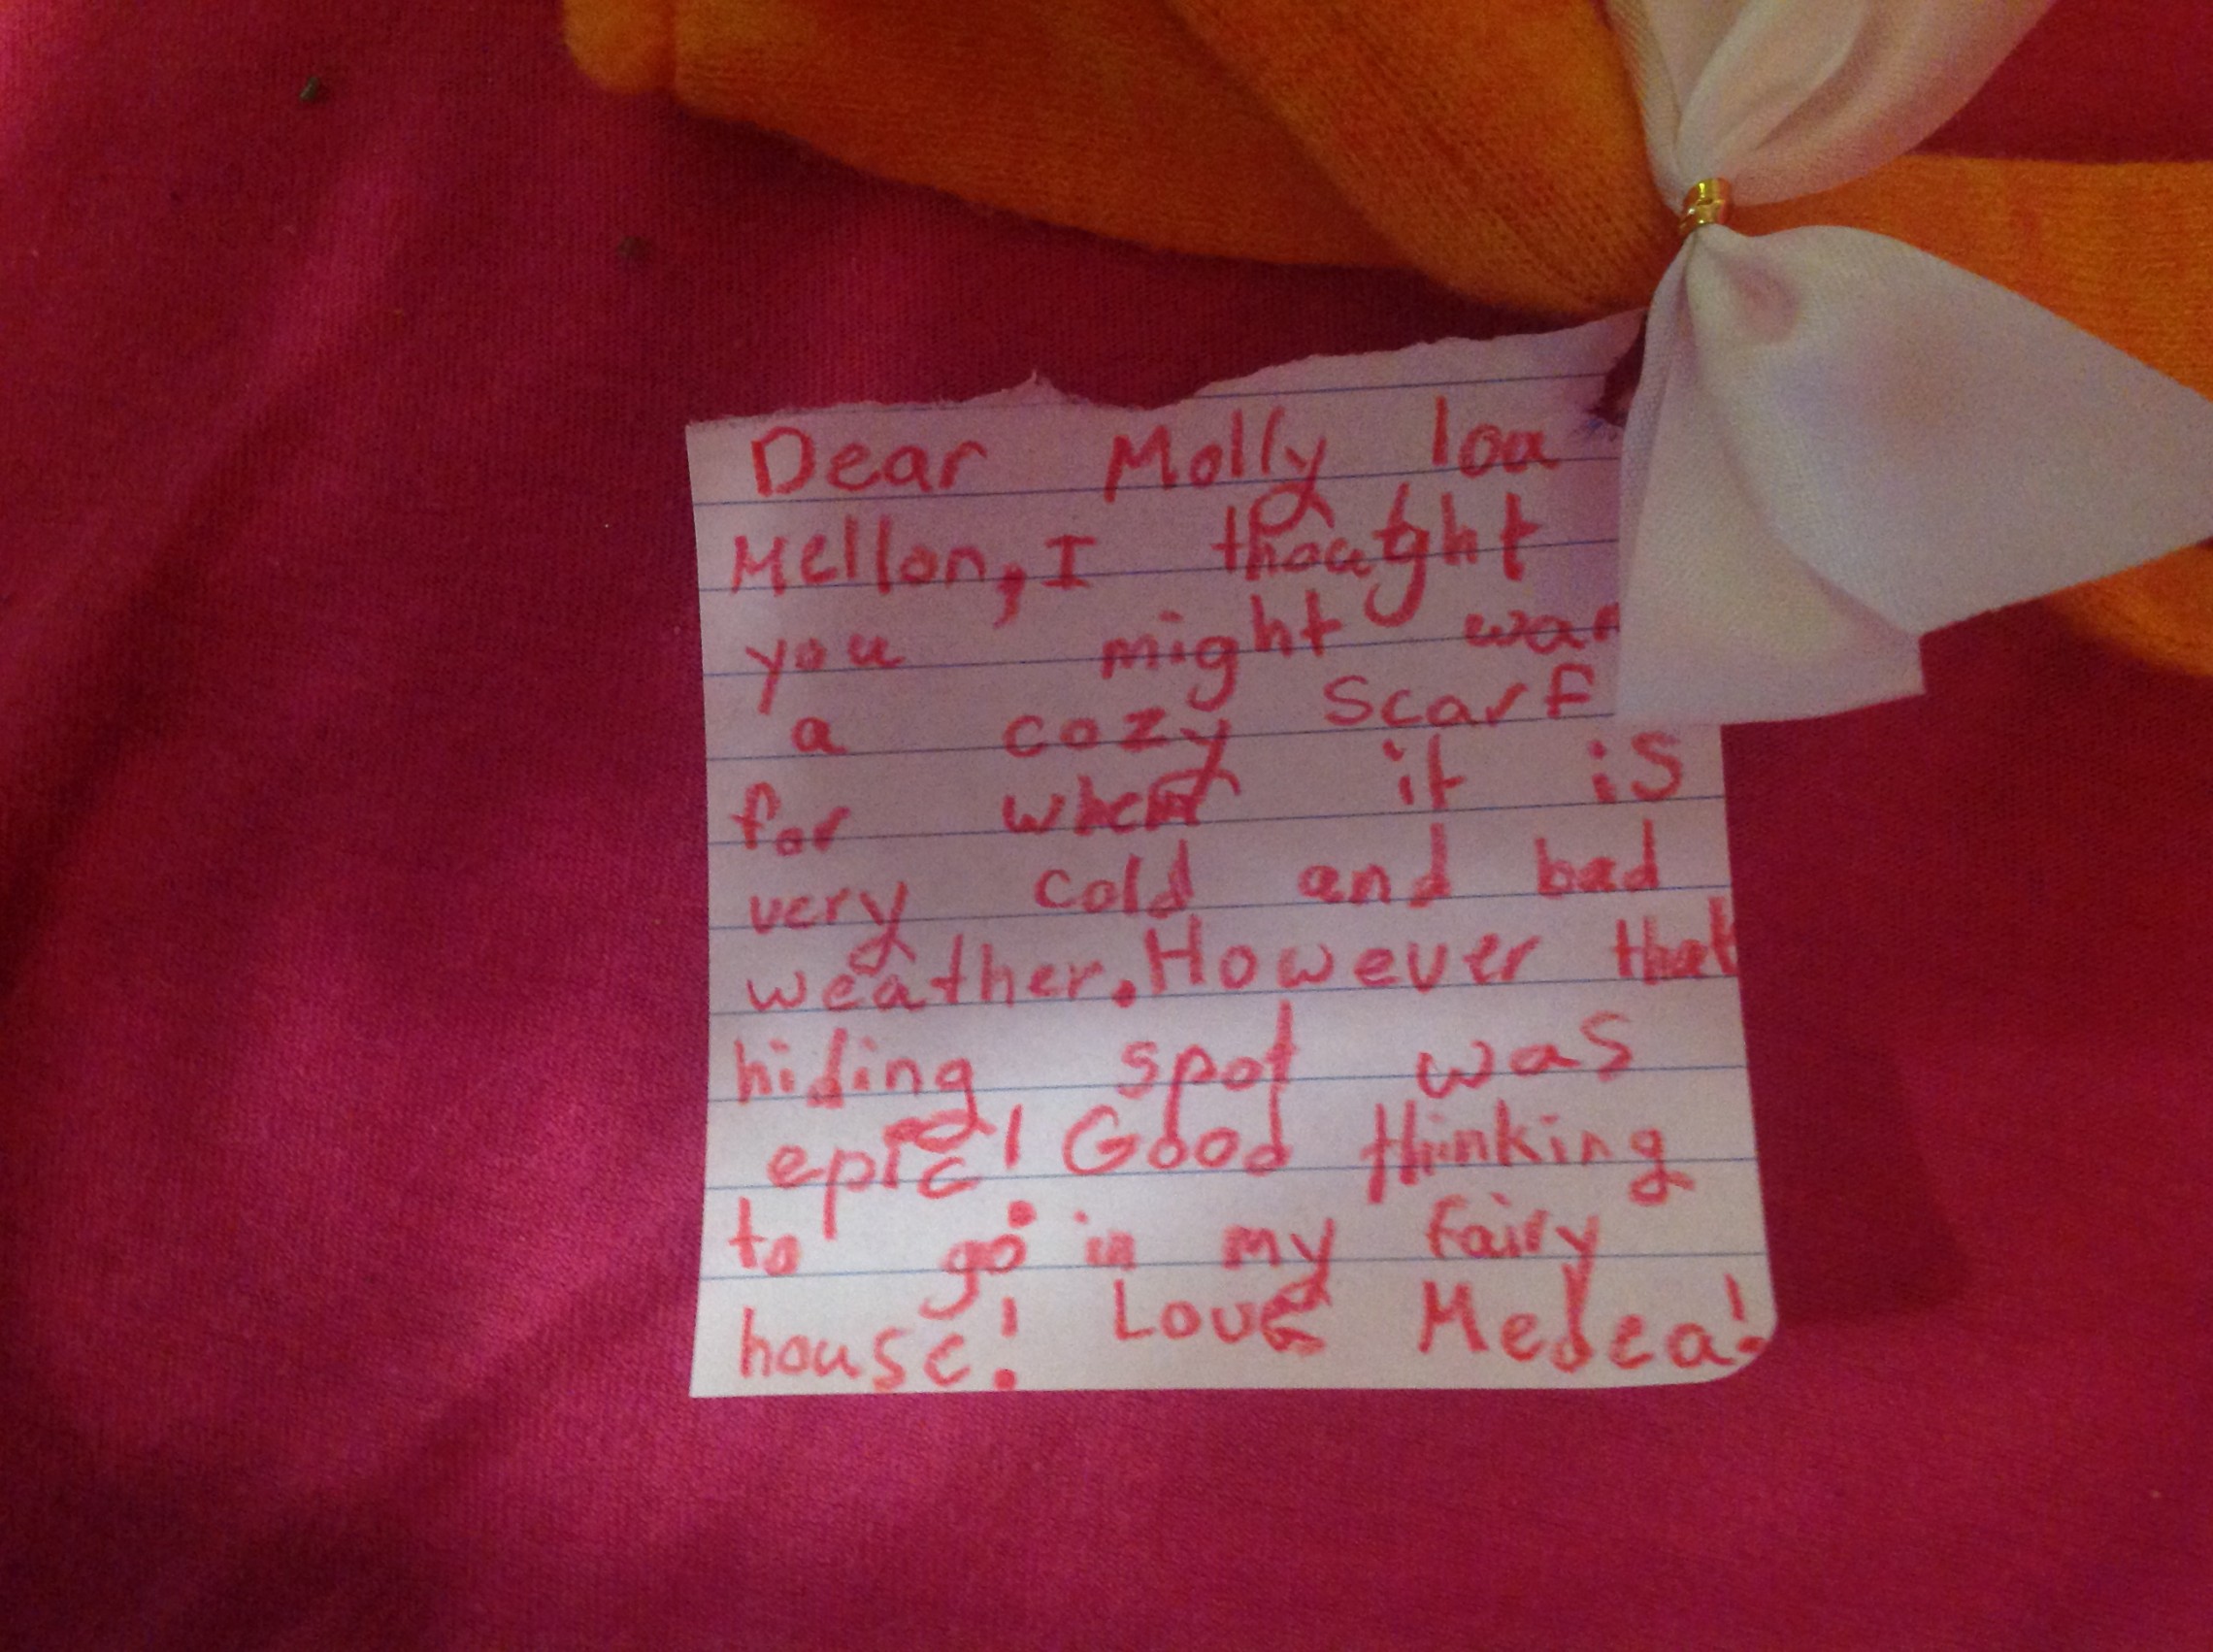 Dear Molly lou
Mellon, I thought
you might wan
a cozy scarf
for when it is
very cold and bad
weather. However that
hiding spot was
epic! Good thinking
to go in my fairy
house! Love Medea!